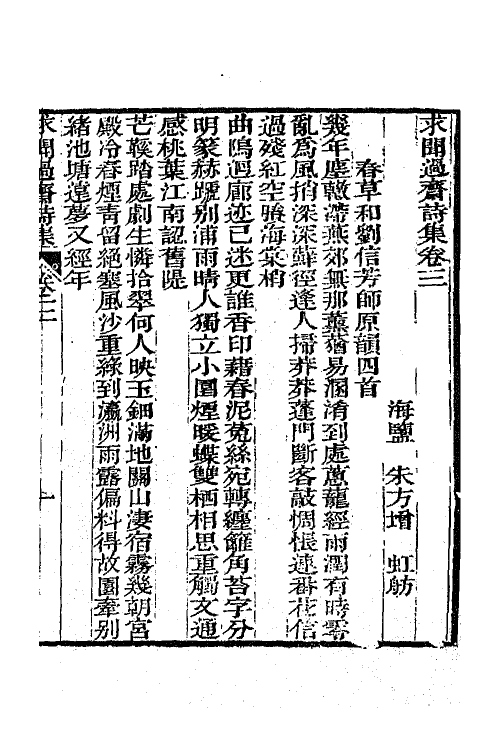 求聞過齋詩集卷三
海鹽　朱方增　虹舫
春草和劉信芳師原韻四首
幾年塵轍滯燕郊無那薰蕕易溷淆到處蔥蘢經雨潤有時零
亂爲風捎深深蘚徑逢人掃莽莽蓬門斷客敲惆悵連番花信
過殘紅空賸海棠梢
曲隖迴廊迹已迷更誰香印藉春泥菟絲宛轉纏籬角苔字分
明篆赫蹏别浦雨晴人獨立小園煙暖蝶雙栖相思重觸文通
感桃葉江南認舊隄
芒鞵踏處劇生憐拾翠何人映玉鈿滿地關山淒宿霧幾朝宮
殿冷春煙靑留絕塞風沙重綠到瀛洲雨露偏料得故園牽别
緒池塘遠夢又經年
求聞過齋詩集
卷三
一